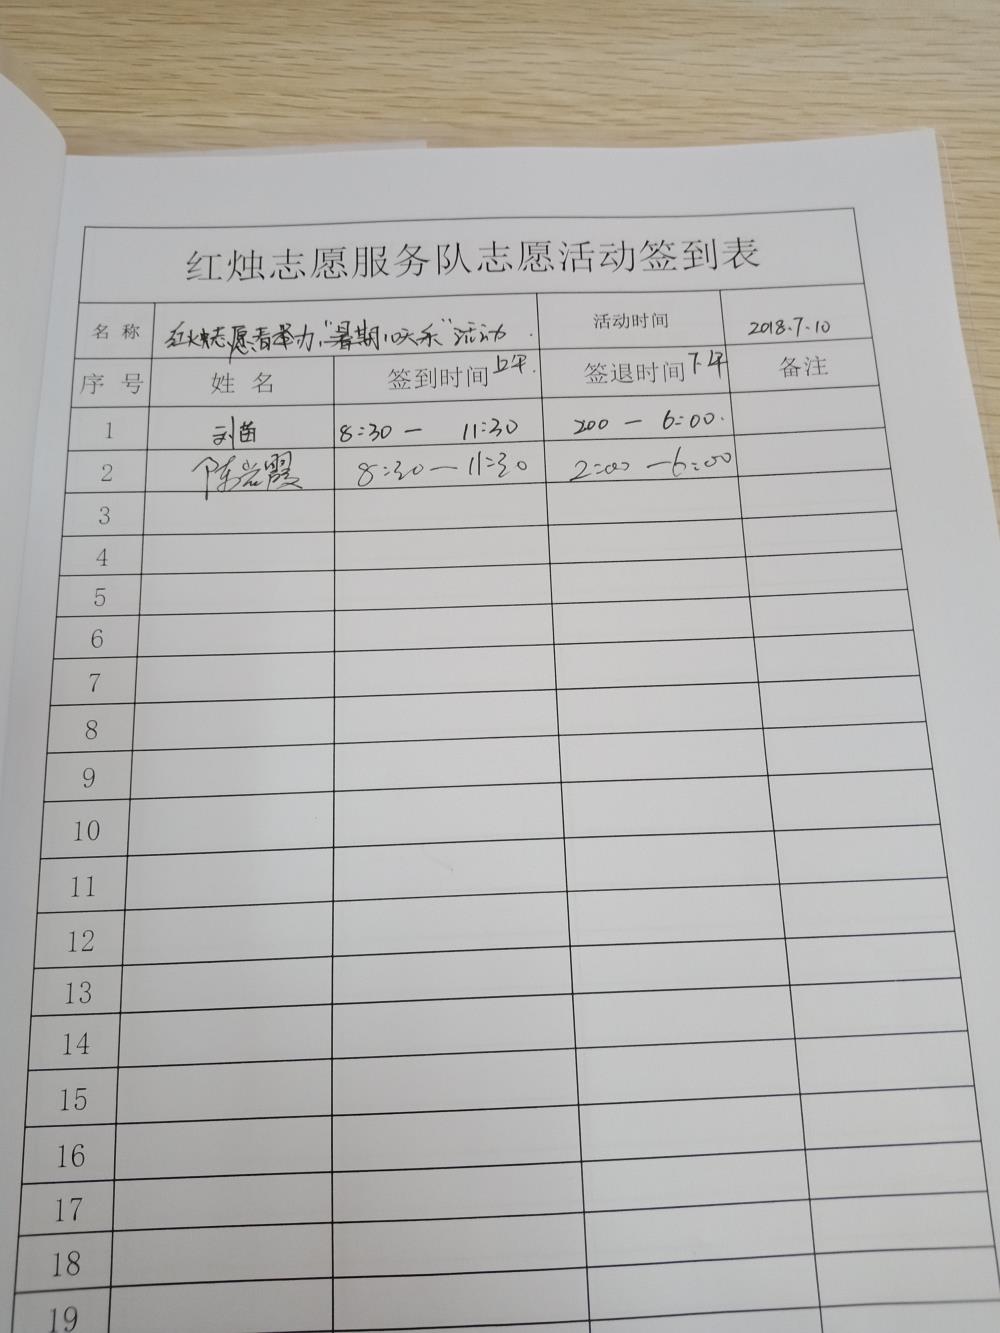 红烛志愿服务队志愿活动签到表
名 称 红烛志愿者举办"暑期10天乐"活动. 活动时间 2018.7.10
序 号 姓 名 签到时间上午. 签退时间下午 备注
1 刘苗 8:30 — 11:30 200 — 6:00.
2 陈 霞 8:30 — 11:30 2:00 — 6:00
3
4
5
6
7
8
9
10
11
12
13
14
15
16
17
18
19